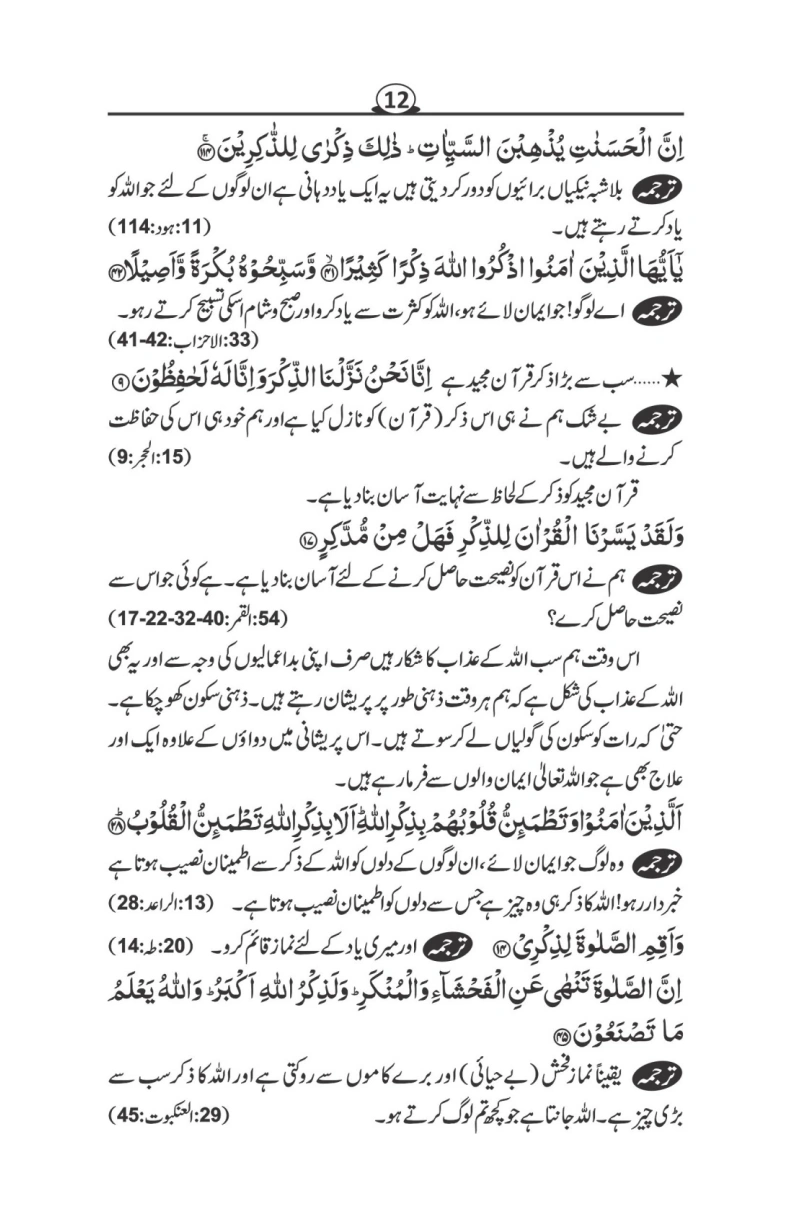 12
اِنَّ الْحَسَنٰتِ يُذْهِبْنَ السَّيِّاٰتِ ؕ ذٰلِكَ ذِكْرٰى لِلذّٰكِرِيْنَ ﴿۱۱۴﴾ۚ
ترجمہ بلاشبہ نیکیاں برائیوں کو دور کر دیتی ہیں یہ ایک یاد دہانی ہے ان لوگوں کے لئے جو اللہ کو
یاد کرتے رہتے ہیں۔ (11:ہود:114)
يٰۤاَيُّهَا الَّذِيْنَ اٰمَنُوا اذْكُرُوا اللّٰهَ ذِكْرًا كَثِيْرًا ﴿۴۱﴾ۙ وَّسَبِّحُوْهُ بُكْرَةً وَّاَصِيْلًا ﴿۴۲﴾
ترجمہ اے لوگو! جو ایمان لائے ہو، اللہ کو کثرت سے یاد کرو اور صبح و شام اسکی تسبیح کرتے رہو۔
(33:الاحزاب:41-42)
★......سب سے بڑا ذکر قرآن مجید ہے اِنَّا نَحْنُ نَزَّلْنَا الذِّكْرَ وَاِنَّا لَهٗ لَحٰفِظُوْنَ ﴿۹﴾
ترجمہ بے شک ہم نے ہی اس ذکر (قرآن) کو نازل کیا ہے اور ہم خود ہی اس کی حفاظت
کرنے والے ہیں۔ (15:الحجر:9)
قرآن مجید کو ذکر کے لحاظ سے نہایت آسان بنا دیا ہے۔
وَلَقَدْ يَسَّرْنَا الْقُرْاٰنَ لِلذِّكْرِ فَهَلْ مِنْ مُّدَّكِرٍ ﴿۱۷﴾
ترجمہ ہم نے اس قرآن کو نصیحت حاصل کرنے کے لئے آسان بنا دیا ہے۔ ہے کوئی جو اس سے
نصیحت حاصل کرے؟ (54:القمر:17-22-32-40)
اس وقت ہم سب اللہ کے عذاب کا شکار ہیں صرف اپنی بداعمالیوں کی وجہ سے اور یہ بھی
اللہ کے عذاب کی شکل ہے کہ ہم ہر وقت ذہنی طور پر پریشان رہتے ہیں۔ ذہنی سکون کھو چکا ہے۔
حتیٰ کہ رات کو سکون کی گولیاں لے کر سوتے ہیں۔ اس پریشانی میں دواؤں کے علاوہ ایک اور
علاج بھی ہے جو اللہ تعالیٰ ایمان والوں سے فرما رہے ہیں۔
اَلَّذِيْنَ اٰمَنُوْا وَتَطْمَىِٕنُّ قُلُوْبُهُمْ بِذِكْرِ اللّٰهِ ؕ اَلَا بِذِكْرِ اللّٰهِ تَطْمَىِٕنُّ الْقُلُوْبُ ﴿۲۸﴾ؕ
ترجمہ وہ لوگ جو ایمان لائے، ان لوگوں کے دلوں کو اللہ کے ذکر سے اطمینان نصیب ہوتا ہے
خبردار رہو! اللہ کا ذکر ہی وہ چیز ہے جس سے دلوں کو اطمینان نصیب ہوتا ہے۔ (13:الراعد:28)
وَاَقِمِ الصَّلٰوةَ لِذِكْرِيْ ﴿۱۴﴾ ترجمہ اور میری یاد کے لئے نماز قائم کرو۔ (20:طہ:14)
اِنَّ الصَّلٰوةَ تَنْهٰى عَنِ الْفَحْشَآءِ وَالْمُنْكَرِ ؕ وَلَذِكْرُ اللّٰهِ اَكْبَرُ ؕ وَاللّٰهُ يَعْلَمُ
مَا تَصْنَعُوْنَ ﴿۴۵﴾
ترجمہ یقیناً نماز فحش (بے حیائی) اور برے کاموں سے روکتی ہے اور اللہ کا ذکر سب سے
بڑی چیز ہے۔ اللہ جانتا ہے جو کچھ تم لوگ کرتے ہو۔ (29:العنکبوت:45)